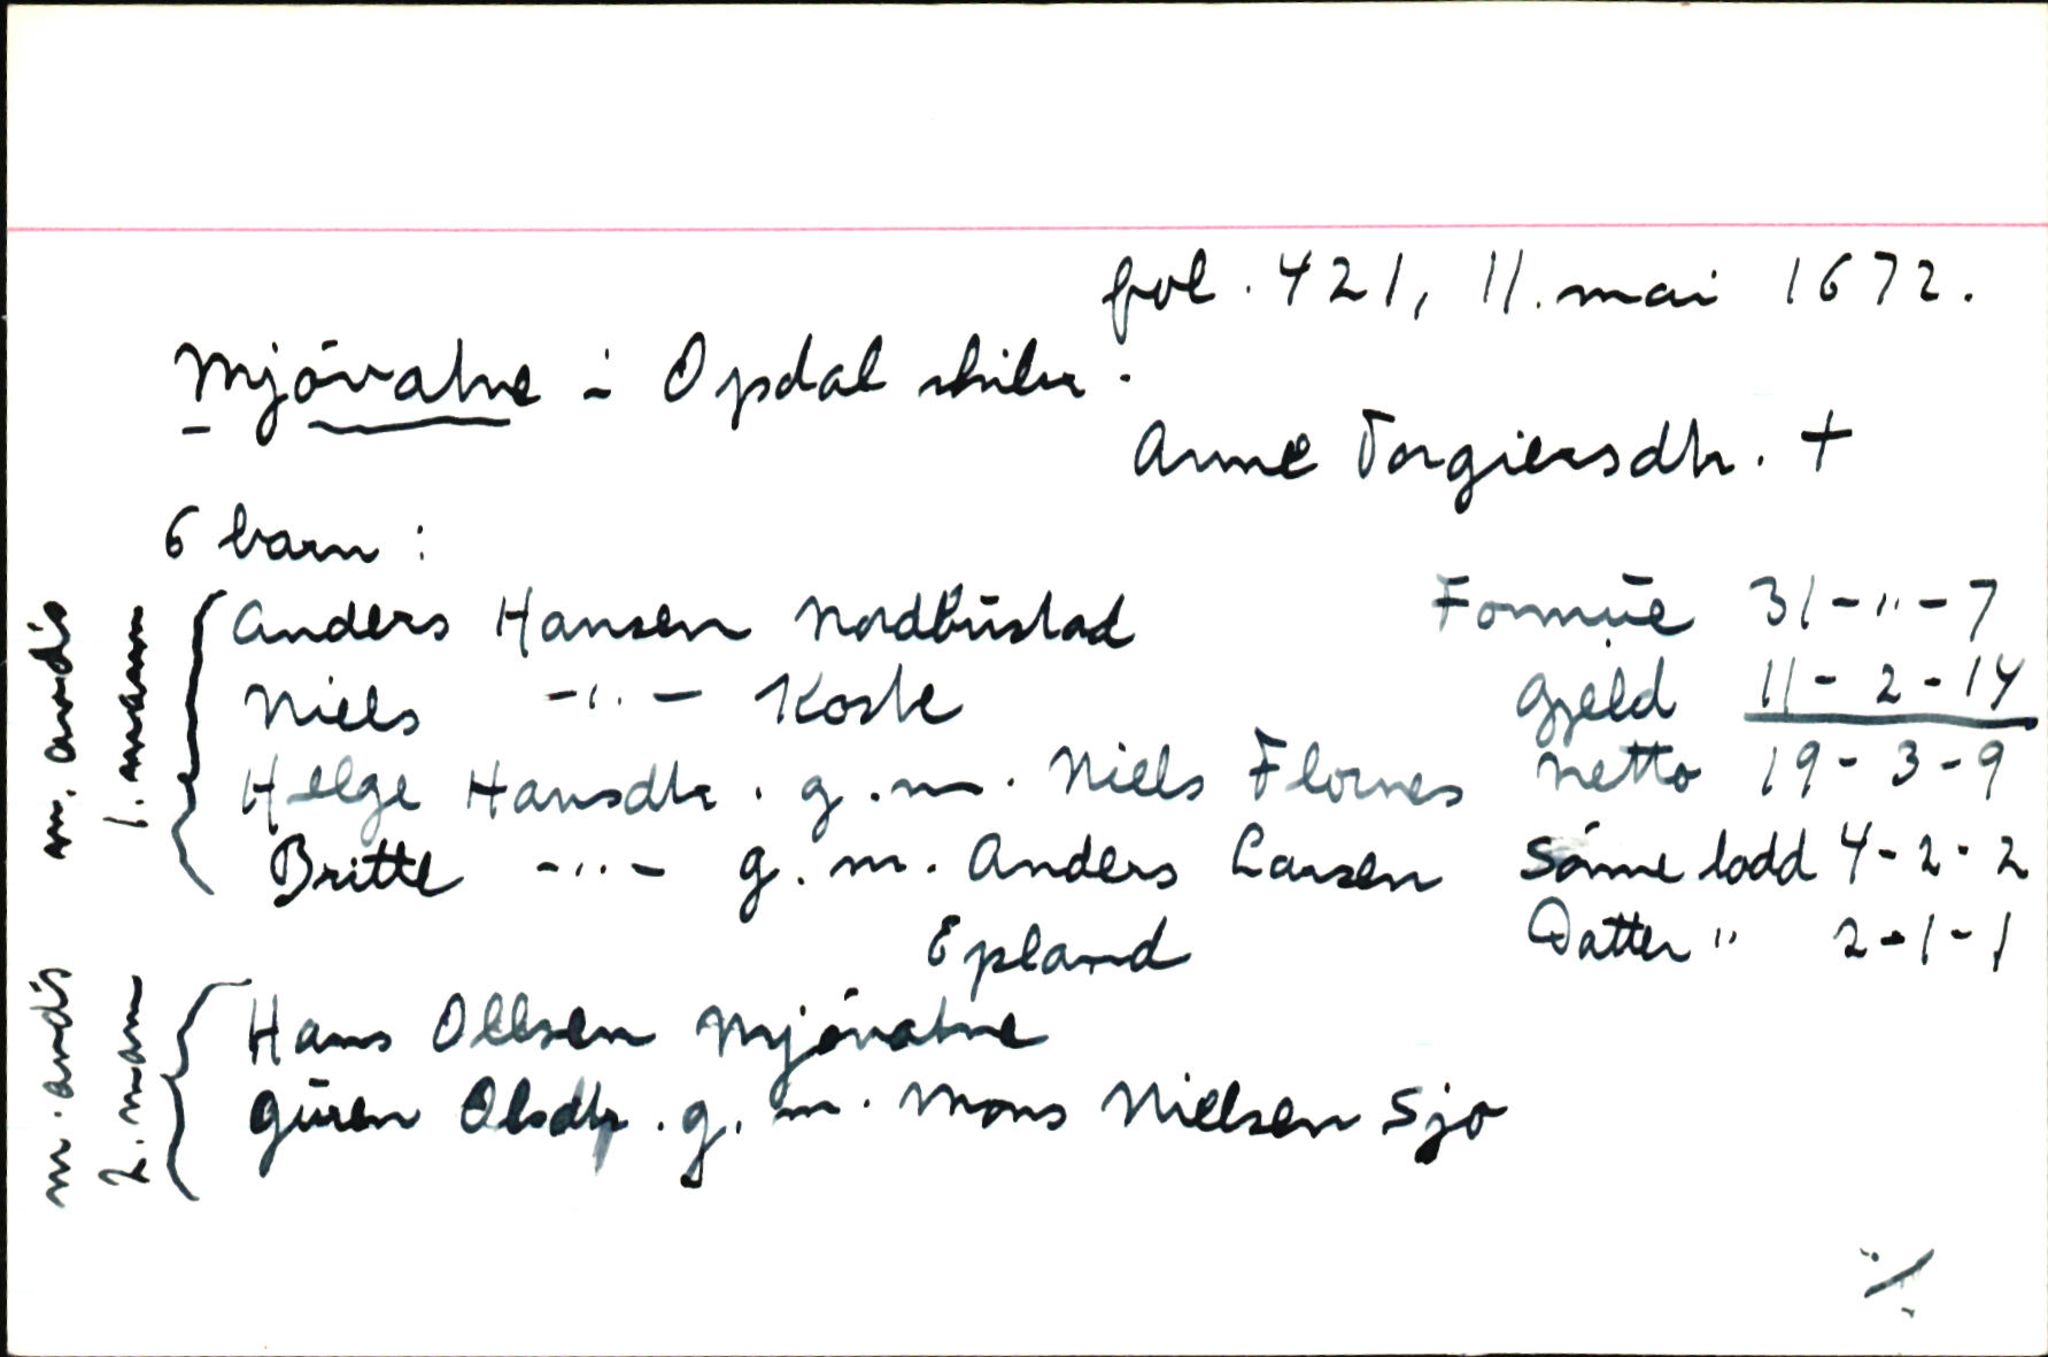 fol. 421, 11. mai 1672.
Mjövatne i Opdal skibr.
Anne Torgiersdtr. +
6 barn :
m. avdøs 1. mann
Anders Hansen Nordbustad Formue 31 - " - 7
Niels - " - Koste Gjeld 11 - 2 - 14
Helge Hansdtr. g. m. Niels Flornes Netto 19 - 3 - 9
Britte - " - g. m. Anders Larsen Sönne lodd 4 - 2 - 2
Epland Datter " 2 - 1 - 1
m. avdøs 2. mann
Hans Ollsen Mjövatne
Guren Olsdtr. g. m. Mons Nielsen Sjo
./.